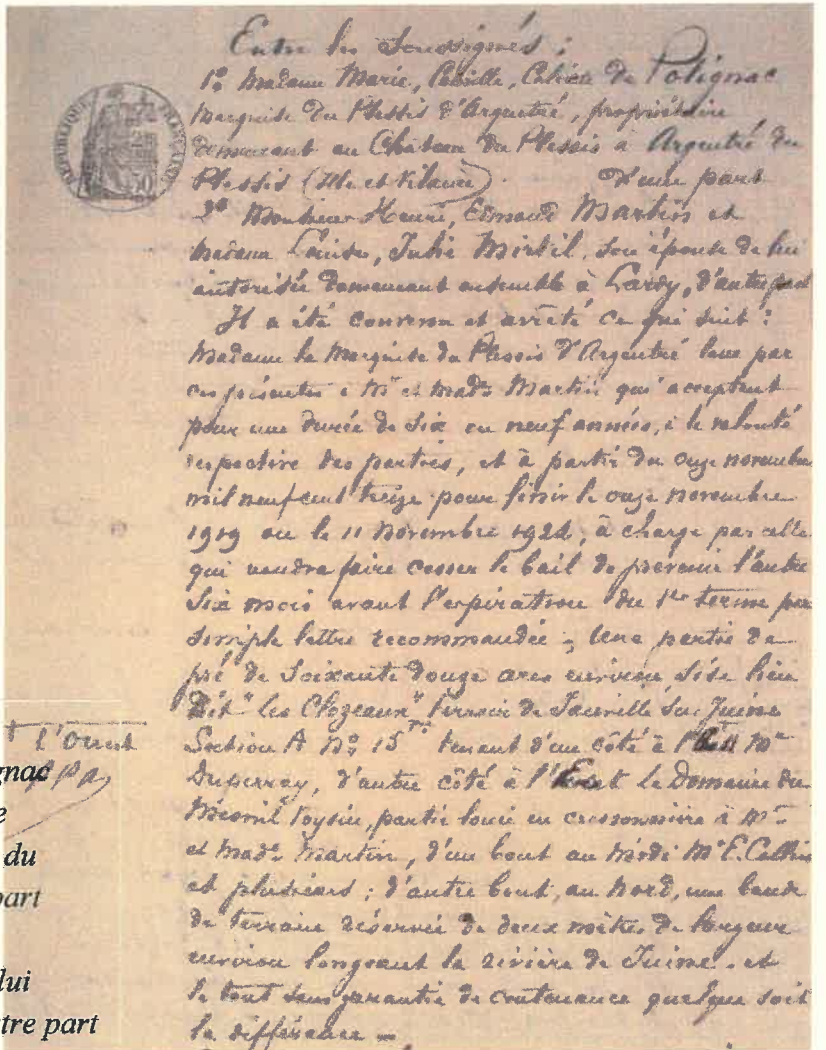 Entre les Soussignés :
1º Madame Marie, Camille, Calixte de Polignac
Marquise du Plessis d'Argentré, propriétaire
demeurant au Château du Plessis à Argentré du
Plessis (Ille et Vilaine). d'une part
2º Monsieur Henri, Edmond Martin et
Madame Louise, Julie Mirbil, son épouse de lui
autorisée demeurant ensemble à Lardy, d'autre part
Il a été convenu et arrêté ce qui suit :
Madame la Marquise du Plessis d'Argentré loue par
ces présentes à Mr et Made Martin qui acceptent
pour une durée de Six ou neuf années, à la volonté
respective des parties, et à partir du onze novembre
mil neuf cent treize pour finir le onze novembre
1919 ou le 11 novembre 1922, à charge par celle
qui voudra faire cesser le bail de prévenir l'autre
Six mois avant l'expiration du 1er terme par
simple lettre recommandée ; Une partie de
pré de Soixante douze ares environ sise lieu
dit "les Clozeaux" terroir de Janville sur Juine
Section A Nº 15 tenant d'un côté à l' Mr
Duperray, d'autre côté à l'Est le Domaine du
Mesnil Voysin, partie louée en cressonnière à Mr
et Made Martin, d'un bout au Midi Mr E.
et plusieurs ; d'autre bout, au Nord, une bande
de terrain réservée de deux mètres de largeur
environ longeant la rivière de Juine. et
le tout sans garantie de contenance quelque soit
la différence =
RÉPUBLIQUE FRANÇAISE
50
l'Ouest
gnac
e
du
part
lui
tre part